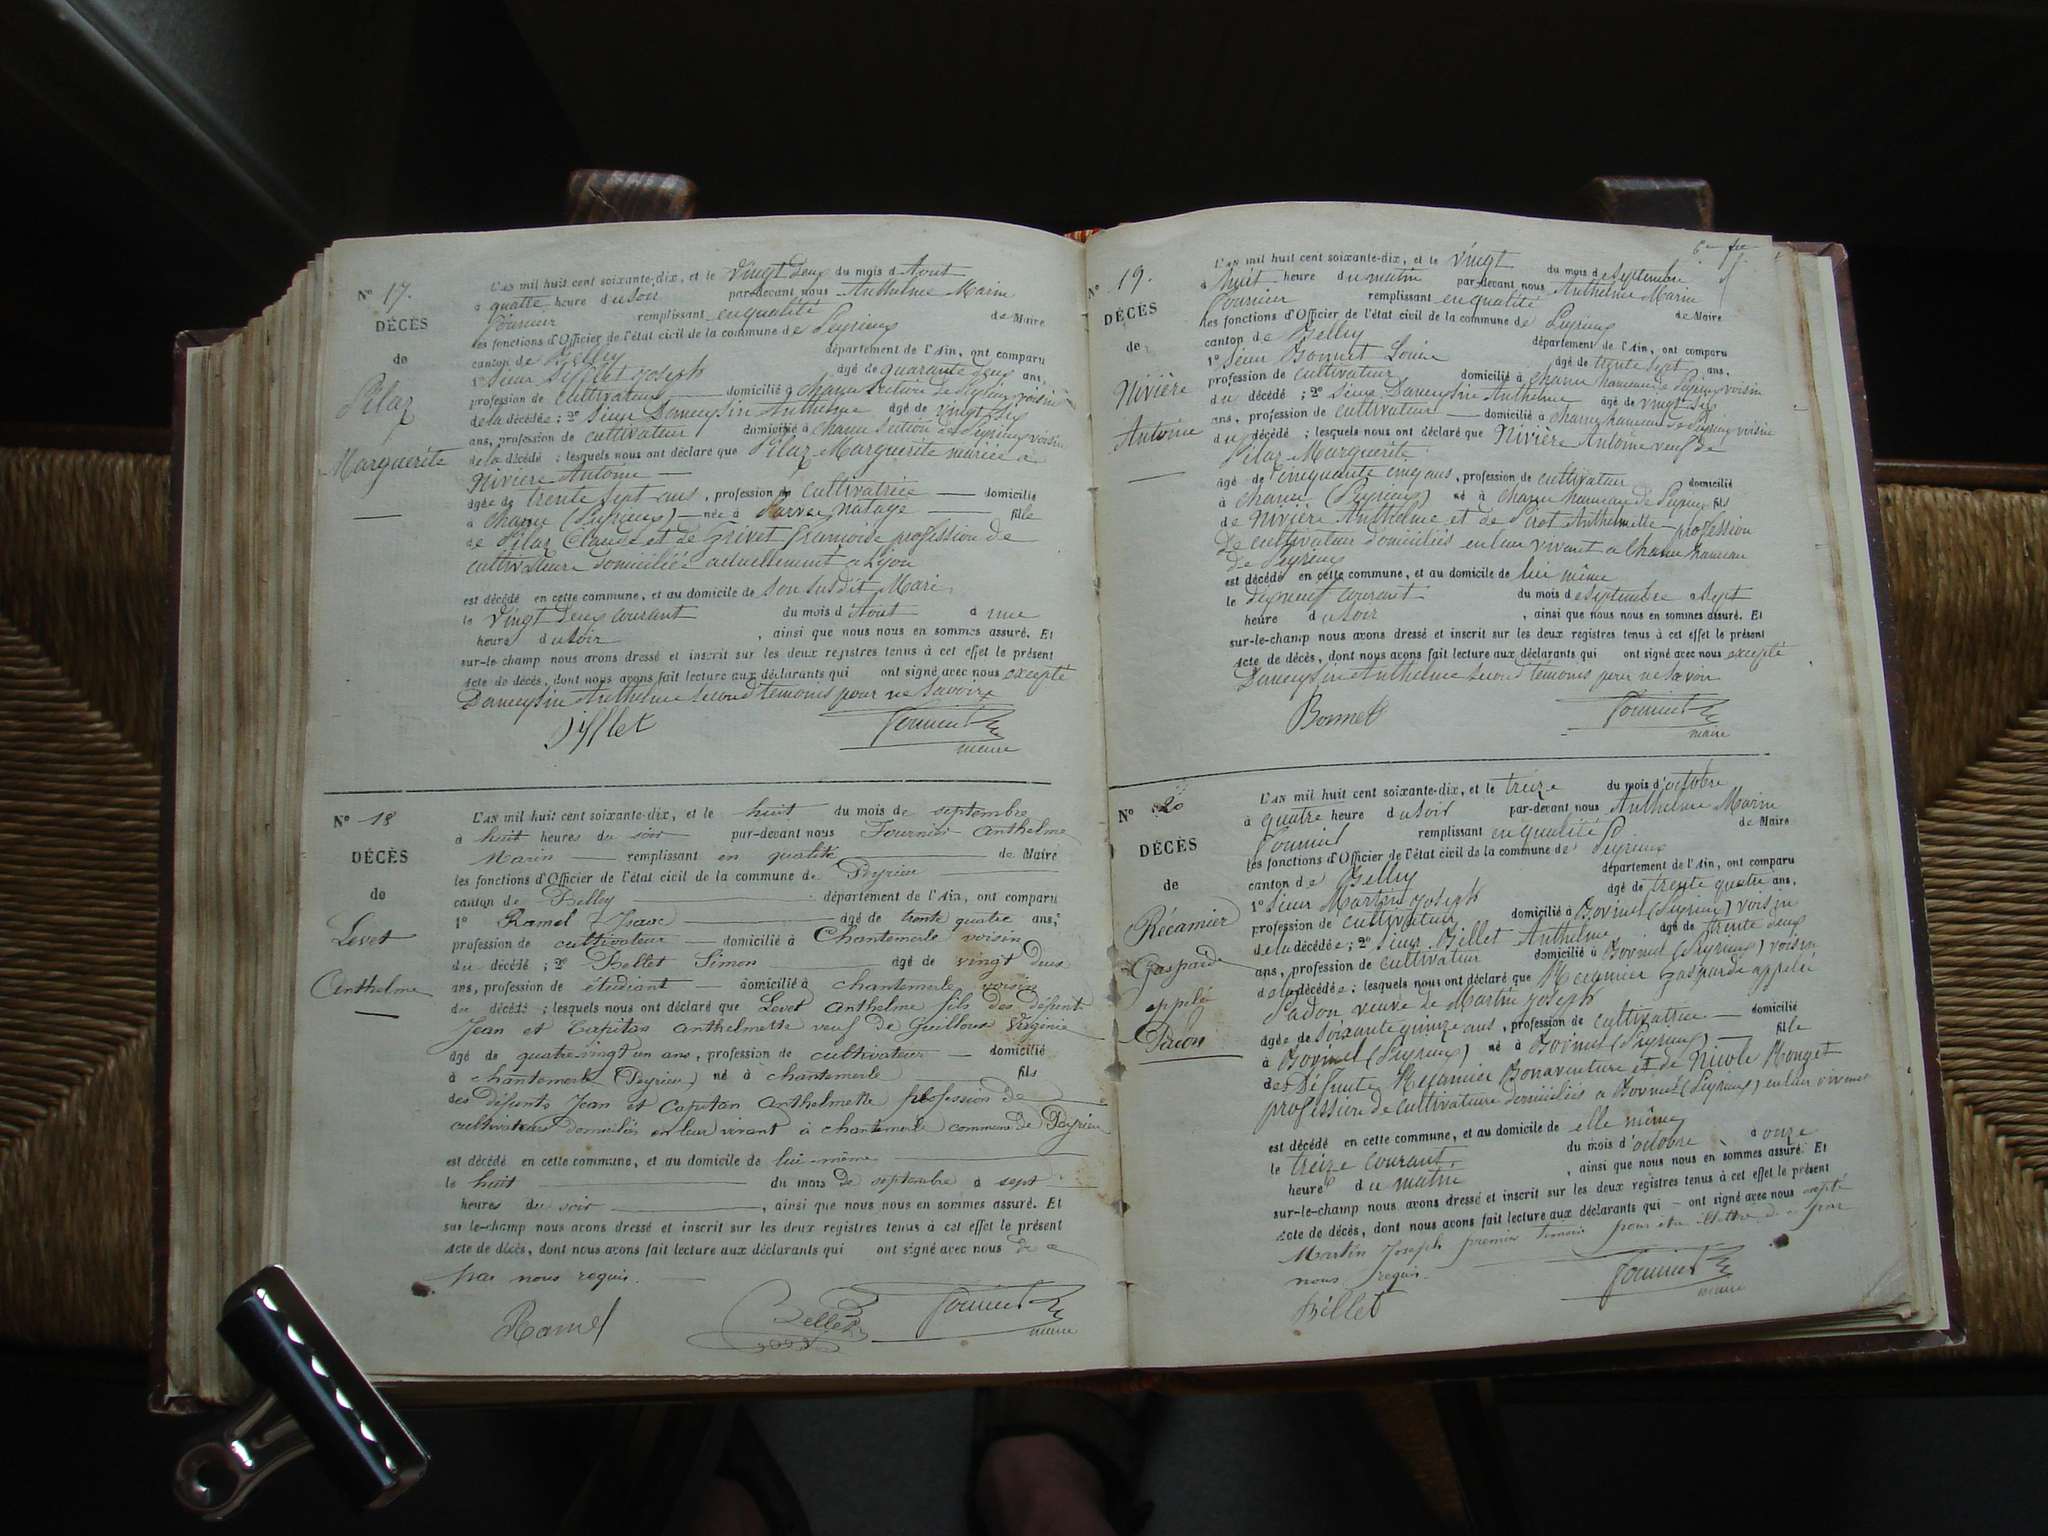 N° 17.
DÉCÈS
de
Pilaz
Marguerite
L'AN mil huit cent soixante-dix, et le Vingt deux du mois d'Aout
à quatre heure du soir par-devant nous Anthelme Marin
Fournier remplissant en qualité de Maire
les fonctions d'Officier de l'état civil de la commune de Peyrieux
canton de Belley département de l'Ain, ont comparu
1° Sieur Sifflet Joseph âgé de quarante deux ans,
profession de cultivateur domicilié à Chanu section de Peyrieux voisin
de la décédée ; 2° Sieur Dameysin Anthelme âgé de vingt six
ans, profession de cultivateur domicilié à Chanu section de Peyrieux voisin
de la décédé ; lesquels nous ont déclaré que Pilaz Marguerite mariée à
Nivière Antoine
âgée de trente sept ans, profession de cultivatrice domicilié
à Chanu (Peyrieux) née à fille
de Pilaz Claude et de Grivet Françoise profession de
cultivateurs domiciliés actuellement à Lyon
est décédé en cette commune, et au domicile de son susdit Mari
le vingt deux courant du mois d'Aout à une
heure du soir , ainsi que nous nous en sommes assuré. Et
sur-le-champ nous avons dressé et inscrit sur les deux registres tenus à cet effet le présent
acte de décès, dont nous avons fait lecture aux déclarants qui ont signé avec nous excepté
Dameysin Anthelme second temoins pour ne savoir
Sifflet Fournier
maire
N° 18
DÉCÈS
de
Levet
Anthelme
L'AN mil huit cent soixante-dix, et le huit du mois de septembre
à huit heures du soir par-devant nous Fournier Anthelme
Marin remplissant en qualité de Maire
les fonctions d'Officier de l'état civil de la commune de Peyrieu
canton de Belley département de l'Ain, ont comparu
1° Ramel Isaac âgé de trente quatre ans,
profession de cultivateur domicilié à Chantemerle voisin
du décédé ; 2° Bellet Simon âgé de vingt deux
ans, profession de étudiant domicilié à chantemerle voisin
du décédé ; lesquels nous ont déclaré que Levet Anthelme fils des défunt
Jean et Capitan Anthelmette veuf de Guilloux Virginie
âgé de quatre vingt un ans, profession de cultivateur domicilié
à chantemerle (Peyrieu) né à chantemerle fils
des défunts Jean et Capitan Anthelmette profession de
cultivateurs domiciliés en leur vivant à chantemerle commune de Peyrieu
est décédé en cette commune, et au domicile de lui-même
le huit du mois de septembre à sept
heures du soir , ainsi que nous nous en sommes assuré. Et
sur-le-champ nous avons dressé et inscrit sur les deux registres tenus à cet effet le présent
acte de décès, dont nous avons fait lecture aux déclarants qui ont signé avec nous de ce
par nous requis.
Ramel Bellet Fournier
maire
N° 19.
DÉCÈS
de
Nivière
Antoine
L'AN mil huit cent soixante-dix, et le vingt du mois de Septembre
à huit heure du matin par-devant nous Anthelme Marin
Fournier remplissant en qualité de Maire
les fonctions d'Officier de l'état civil de la commune de Peyrieux
canton de Belley département de l'Ain, ont comparu
1° Sieur Bonnet Louis âgé de trente sept ans,
profession de cultivateur domicilié à Chanu hameau de Peyrieux voisin
du décédé ; 2° Sieur Dameysin Anthelme âgé de vingt six
ans, profession de cultivateur domicilié à Chanu hameau de Peyrieux voisin
du décédé ; lesquels nous ont déclaré que Nivière Antoine veuf de
Pilaz Marguerite
âgé de cinquante cinq ans, profession de cultivateur domicilié
à Chanu (Peyrieux) né à Chanu hameau de Peyrieux fils
de Nivière Anthelme et de Pirot Anthelmette profession
de cultivateur domiciliés en leur vivant à Chanu hameau
de Peyrieux
est décédé en cette commune, et au domicile de lui même
le dix neuf courant du mois de Septembre à sept
heure du soir , ainsi que nous nous en sommes assuré. Et
sur-le-champ nous avons dressé et inscrit sur les deux registres tenus à cet effet le présent
acte de décès, dont nous avons fait lecture aux déclarants qui ont signé avec nous excepté
Dameysin Anthelme second temoins pour ne savoir
Bonnet Fournier
maire
N° 20
DÉCÈS
de
Récamier
Gasparde
appelé
Padon
L'AN mil huit cent soixante-dix, et le treize du mois d'octobre
à quatre heure du soir par-devant nous Anthelme Marin
Fournier remplissant en qualité de Maire
les fonctions d'Officier de l'état civil de la commune de Peyrieux
canton de Belley département de l'Ain, ont comparu
1° Sieur Martin Joseph âgé de trente quatre ans,
profession de cultivateur domicilié à Bovinel (Peyrieux) voisin
de la décédée ; 2° Sieur Bellet Anthelme âgé de trente deux
ans, profession de cultivateur domicilié à Bovinel (Peyrieux) voisin
de la décédée ; lesquels nous ont déclaré que Récamier Gasparde appelée
Padon veuve de Martin Joseph
âgée de soixante quinze ans, profession de cultivatrice domicilié
à Bovinel (Peyrieux) né à Bovinel (Peyrieux) fille
des Défunts Récamier Bonaventure et de Nicole Monget
profession de cultivateurs domiciliés à Bovinel (Peyrieux) en leur vivant
est décédé en cette commune, et au domicile de elle même
le treize courant du mois d'octobre à onze
heure du matin , ainsi que nous nous en sommes assuré. Et
sur-le-champ nous avons dressé et inscrit sur les deux registres tenus à cet effet le présent
acte de décès, dont nous avons fait lecture aux déclarants qui ont signé avec nous excepté
Martin Joseph premier temoin pour etre illettré de ce par
nous requis.
Bellet Fournier
maire